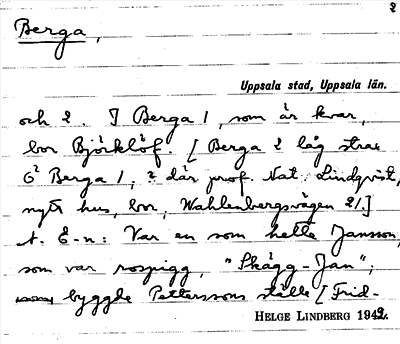 2
Berga,
Uppsala stad, Uppsala län.
och 2. I Berga 1, som är kvar,
bor Björklöf. [Berga 2 låg strax
Berga 1, där prof. Nat. Lindqvist,
nytt hus, bor, Wahlenbergsvägen 21.]
A. E-n: Var en som hette Jansson,
som var rospigg, "Skägg-Jan";
byggde Petterssons ställe [Frid-
HELGE LINDBERG 1942.